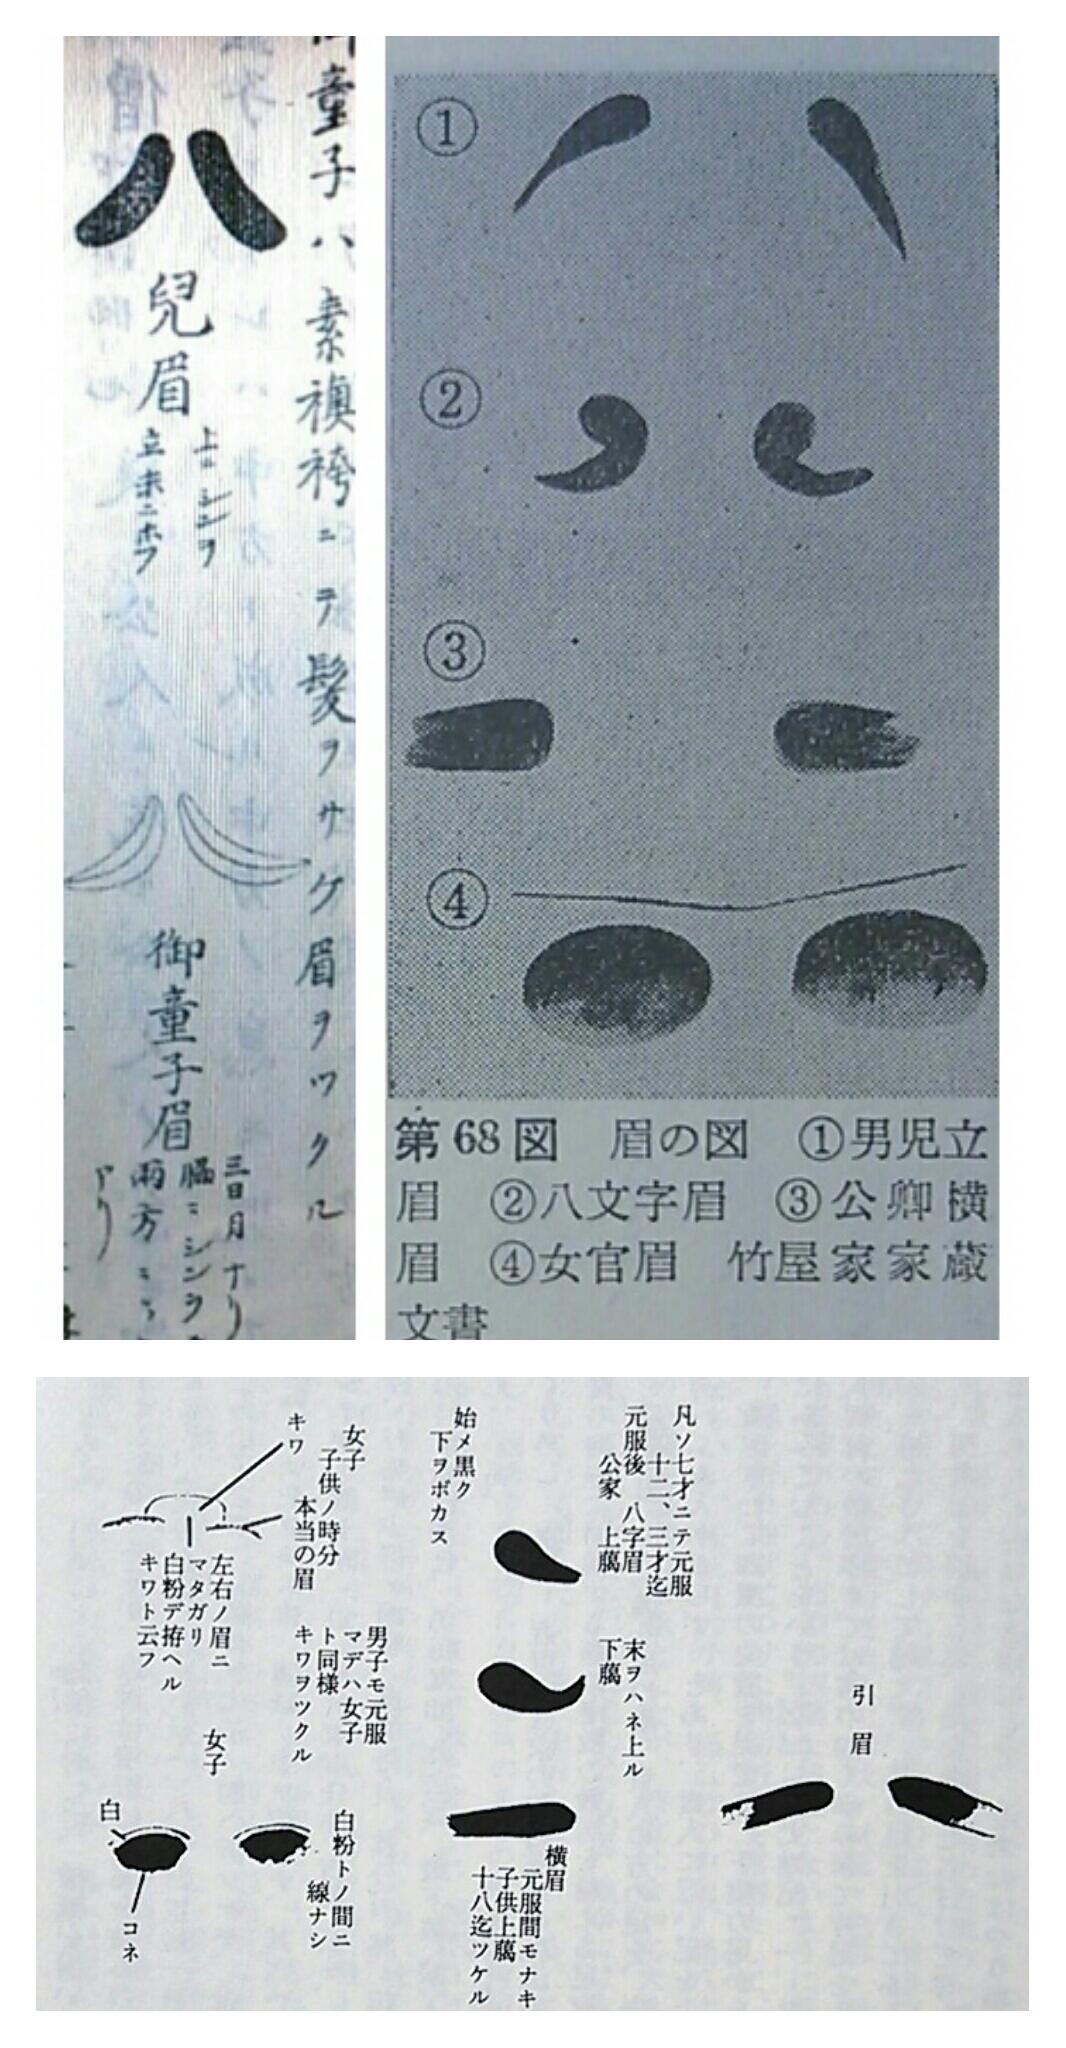 御童子ハ素襖袴ニテ髪ヲサケ眉ヲツクル
兒眉
御童子眉
三日月ナリ
両方ニ
①
②
③
④
第68図 眉の図 ①男児立
眉 ②八文字眉 ③公卿横
眉 ④女官眉 竹屋家家蔵
文書
凡ソ七才ニテ元服
十二、三才迄
元服後 八字眉
公家 上﨟
末ヲハネ上ル
下﨟
引眉
始メ黒ク
下ヲボカス
横眉
元服間モナキ
子供上﨟
十八迄ツケル
女子
子供ノ時分
本当の眉
キワ
左右ノ眉ニ
マタガリ
白粉デ拵ヘル
キワト云フ
男子モ元服
マデハ女子
ト同様
キワヲツクル
女子
白粉トノ間ニ
線ナシ
白
コネ